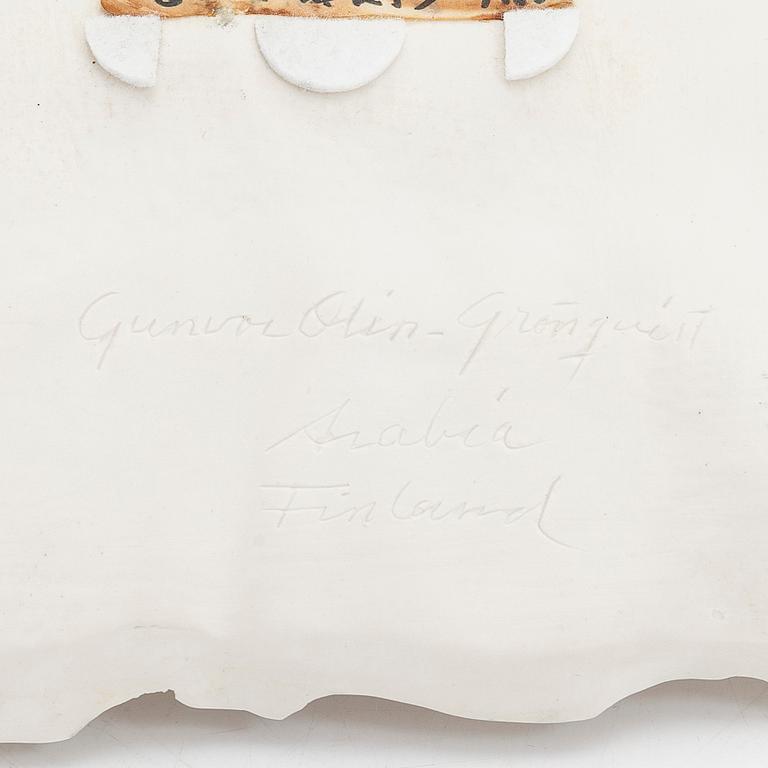 Gunvor Olin-Grönqvist
Arabia
Finland